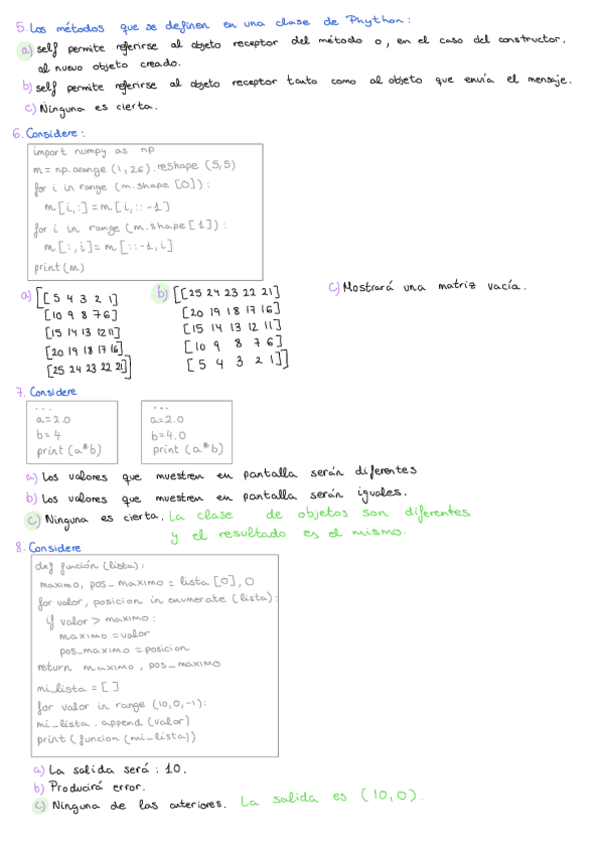 5. Los métodos que se definen en una clase de Phython:
a) self permite referirse al objeto receptor del método o, en el caso del constructor,
al nuevo objeto creado.
b) self permite referirse al objeto receptor tanto como al objeto que envía el mensaje.
c) Ninguna es cierta.
6. Considere:
import numpy as np
m = np.arange (1, 26).reshape (5,5)
for i in range (m.shape [0]):
m[i,:] = m[i, :: -1]
for i in range (m.shape [1]):
m[:, i] = m[:: -1, i]
print (m)
a) [[5 4 3 2 1]
[10 9 8 7 6]
[15 14 13 12 11]
[20 19 18 17 16]
[25 24 23 22 21]]
b) [[25 24 23 22 21]
[20 19 18 17 16]
[15 14 13 12 11]
[10 9 8 7 6]
[5 4 3 2 1]]
c) Mostrará una matriz vacía.
7. Considere
...
a=2.0
b=4
print (a*b)
...
a=2.0
b=4.0
print (a*b)
a) Los valores que muestren en pantalla serán diferentes
b) Los valores que muestren en pantalla serán iguales.
c) Ninguna es cierta. La clase de objetos son diferentes
y el resultado es el mismo.
8. Considere
def función (lista):
maximo, pos_maximo = lista [0], 0
for valor, posicion in enumerate (lista):
if valor > maximo:
maximo = valor
pos_maximo = posicion
return maximo, pos_maximo
mi_lista = [ ]
for valor in range (10,0,-1):
mi_lista.append (valor)
print (funcion (mi_lista))
a) La salida será: 10.
b) Producirá error.
c) Ninguna de las anteriores. La salida es (10,0).